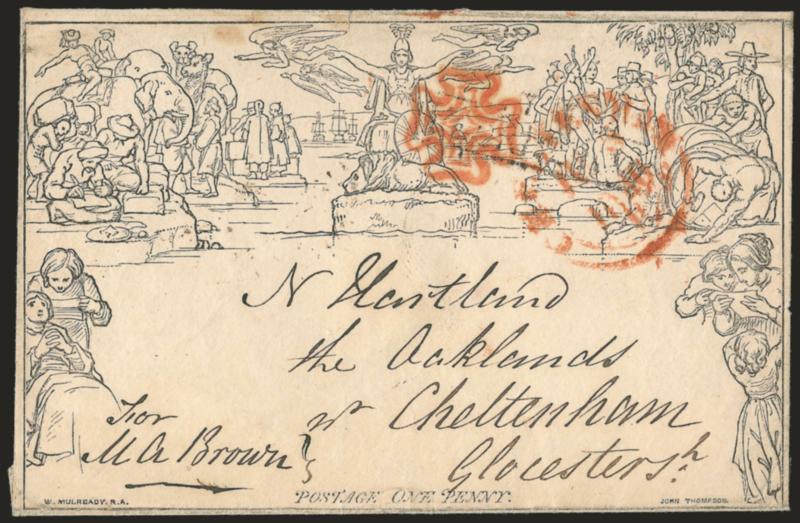 N Hartland
the Oaklands
nr Cheltenham
Glocestersh.
For
M A Brown
POSTAGE ONE PENNY.
W. MULREADY. R.A.
JOHN THOMPSON.